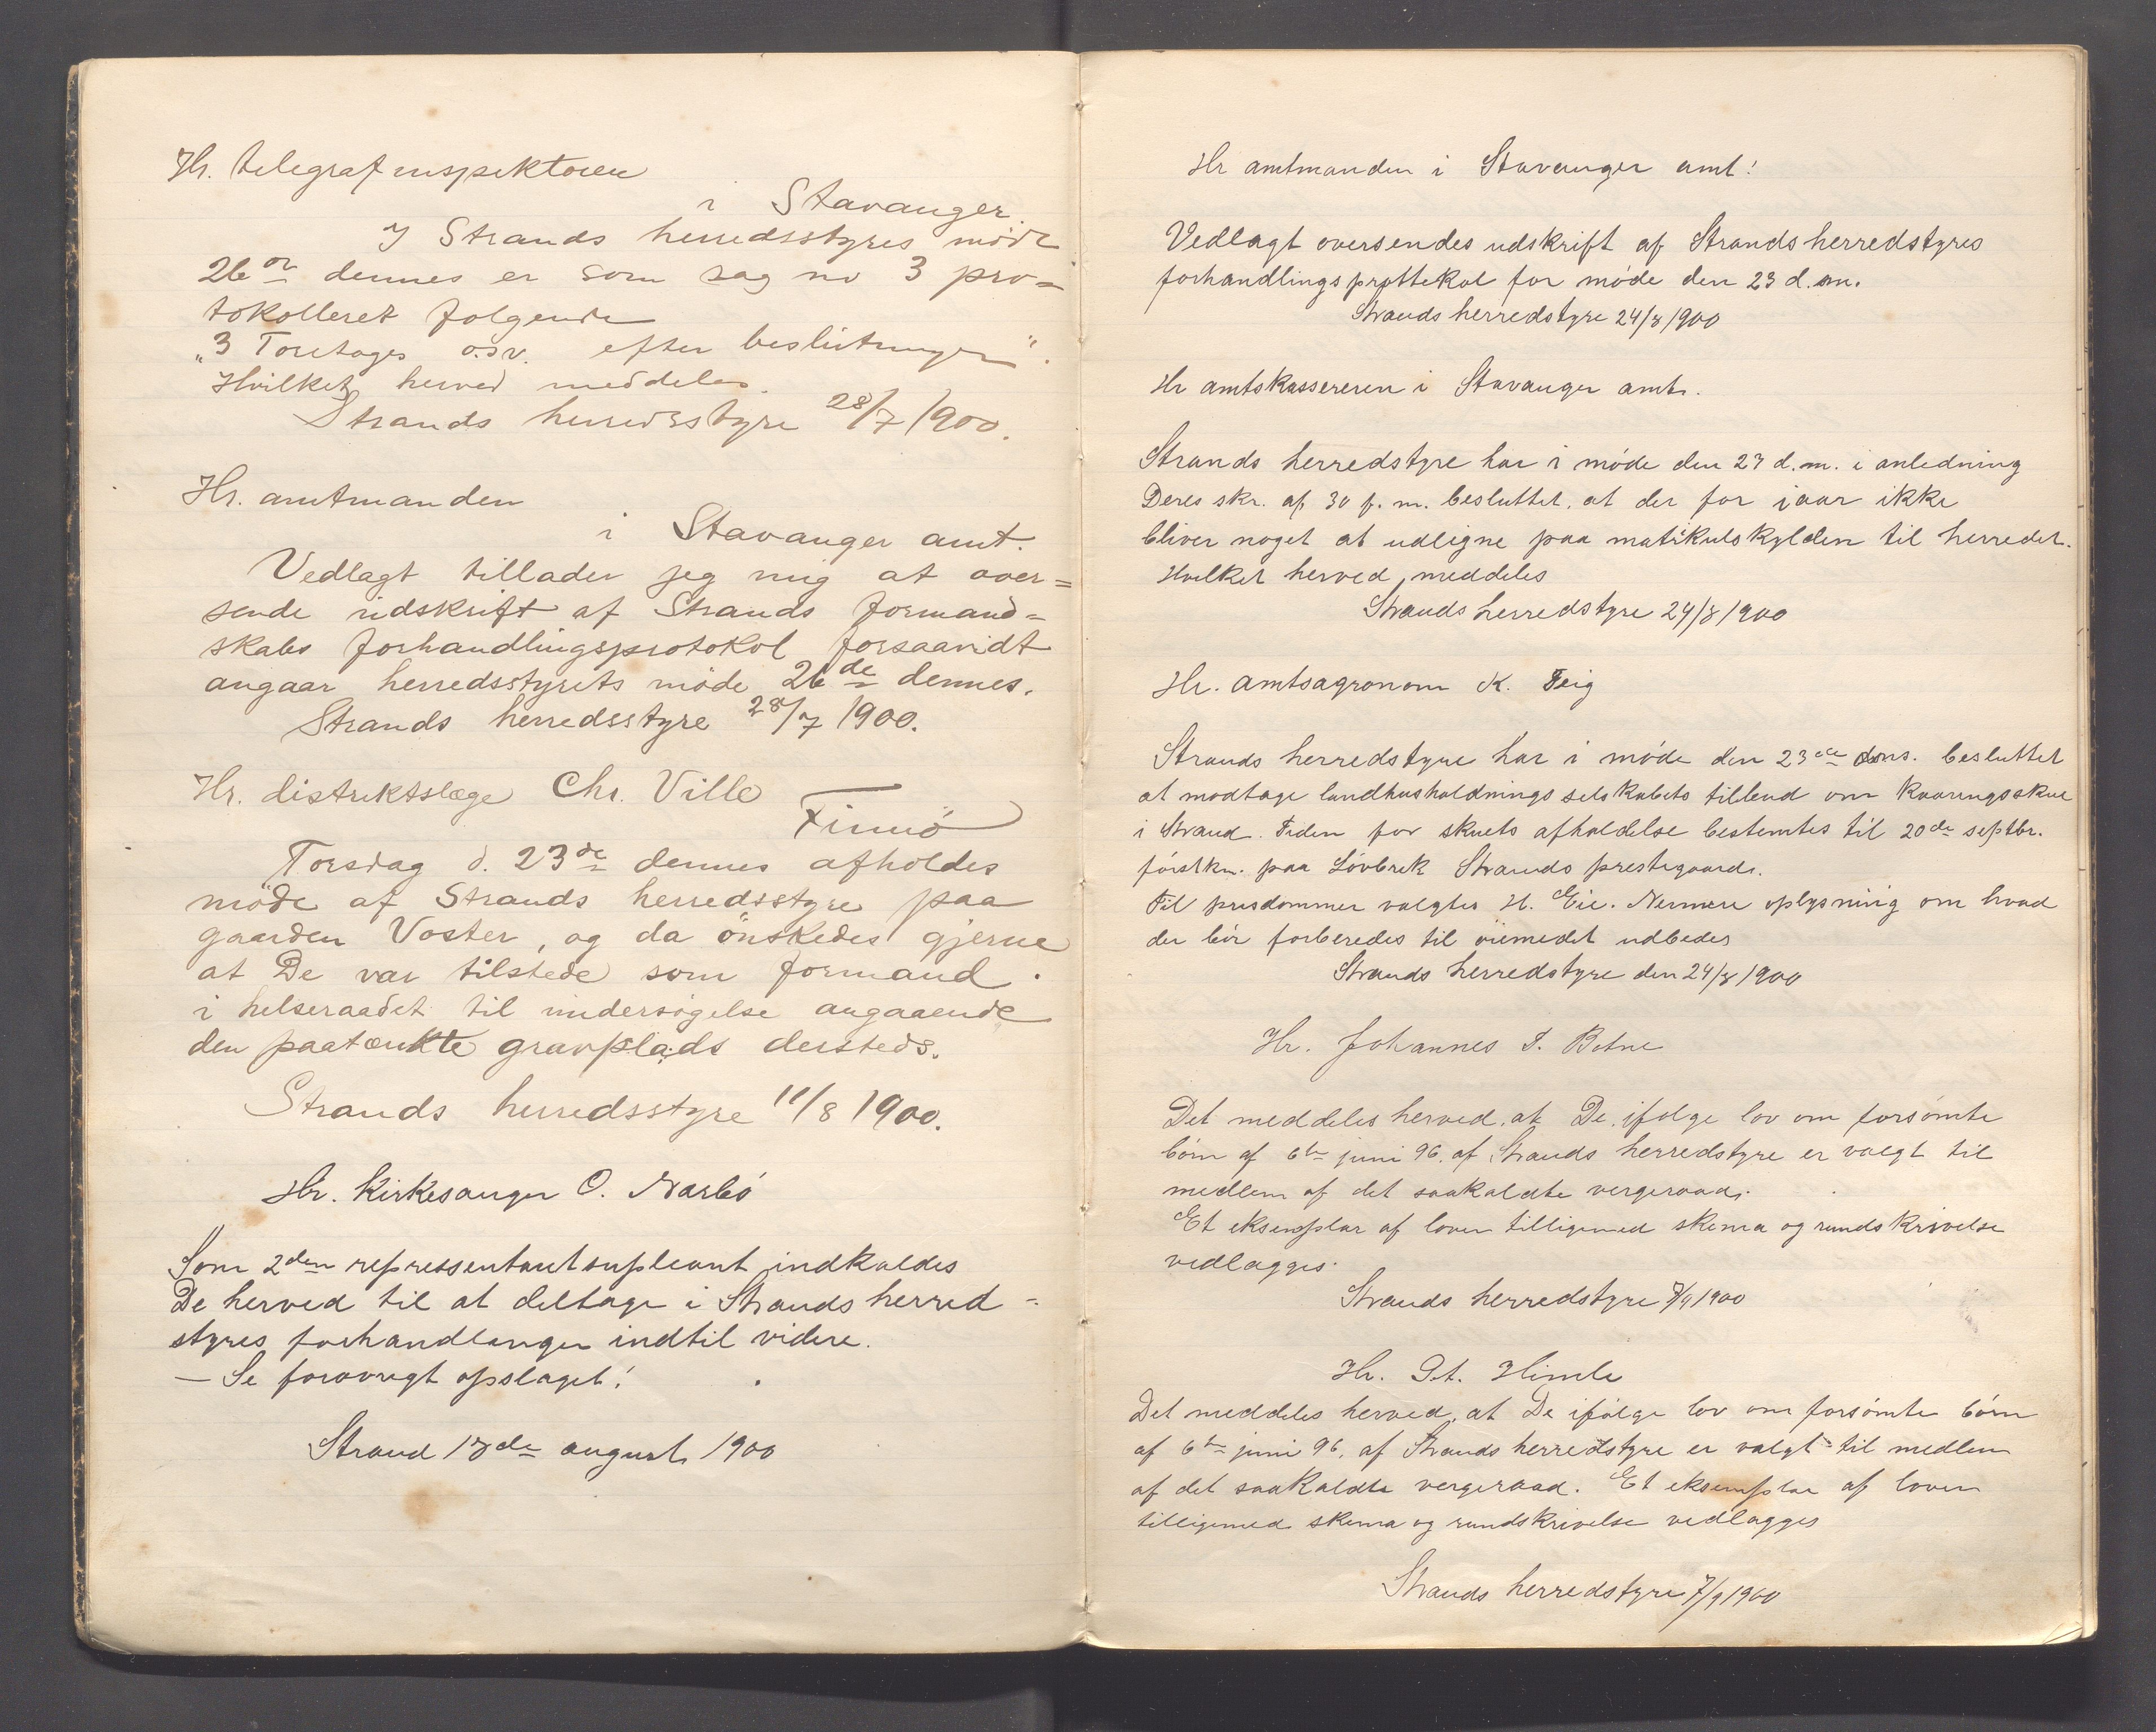 Hr. telegrafinspektören
i Stavanger.
I Strands herredsstyres möde
26de dennes er som sag no 3 pro=
tokolleret følgende
„3 Foretages o.s.v. efter beslutninger".
Hvilket herved meddeles.
Strands herredsstyre 28/7 1900.
Hr. amtmanden
i Stavanger amt.
Vedlagt tillader jeg mig at over=
sende udskrift af Strands formand=
skabs forhandlingsprotokol forsaavidt
angaar herredsstyrets möde 26de dennes.
Strands herredsstyre 28/7 1900.
Hr. distriktslæge Chr. Ville
Finnö
Torsdag d. 23de dennes afholdes
möde af Strands herredsstyre paa
gaarden Voster, og da önskedes gjerne
at De var tilstede som formand
i helseraadet til undersögelse angaaende
den paatænkte gravplads dersteds.
Strands herredsstyre 11/8 1900.
Hr. Kirkesanger O. Narbö
Som 2den repressentantsupleant indkaldes
De herved til at deltage i Strands herred=
styres forhandlinger indtil videre.
— Se forøvrigt opslaget!
Strand 18de august 1900
Hr amtmanden i Stavanger amt!
Vedlagt oversendes udskrift af Strands herredstyres
forhandlingsprottekol for möde den 23 d.m.
Strands herredstyre 24/8 1900
Hr amtskassereren i Stavanger amt.
Strands herredstyre har i möde den 23 d.m. i anledning
Deres skr. af 30 f.m. besluttet, at der for iaar ikke
bliver noget at udligne paa matrikulskylden til herredet.
Hvilket herved meddeles
Strands herredstyre 24/8 1900
Hr. amtsagronom K. Feig
Strands herredstyre har i möde den 23de dms. besluttet
at modtage landhusholdningsselskabets tilbud om Kaaringsskue
i Strand. Tiden for skuets afholdelse bestemtes til 20de septbr.
förstkm. paa Lövbrek Strands prestegaard.
Til prisdommer valgtes H. Eie. Nermere oplysning om hvad
der bör forberedes til öiemedet udbedes
Strands herredstyre den 24/8 1900
Hr. Johannes T. Botne
Det meddeles herved, at De, ifölge lov om forsömte
börn af 6te juni 96, af Strands herredstyre er valgt til
medlem af det saakaldte vergeraad.
Et eksemplar af loven tilligemed skema og rundskrivelse
vedlægges.
Strands herredstyre 7/9 1900
Hr. P.t. Himle
Det meddeles herved, at De ifölge lov om forsömte börn
af 6te juni 96, af Strands herredstyre er valgt til medlem
af det saakaldte vergeraad. Et eksemplar af loven
tilligemed skema og rundskrivelse vedlægges
Strands herredstyre 7/9 1900